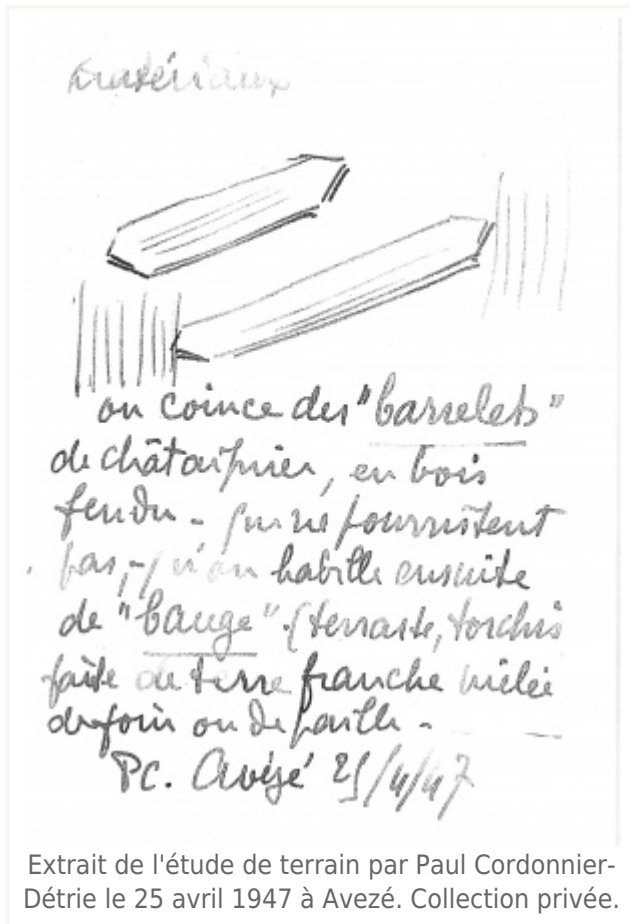 matériaux
on coince des "barrelets"
de châtaignier, en bois
fendu - qui ne pourrissent
pas, - qu'on habille ensuite
de "bauge" - (terraste, torchis
faite de terre franche mêlée
de foin ou de paille -
PC. Avezé 25/4/47
Extrait de l'étude de terrain par Paul Cordonnier-
Détrie le 25 avril 1947 à Avezé. Collection privée.